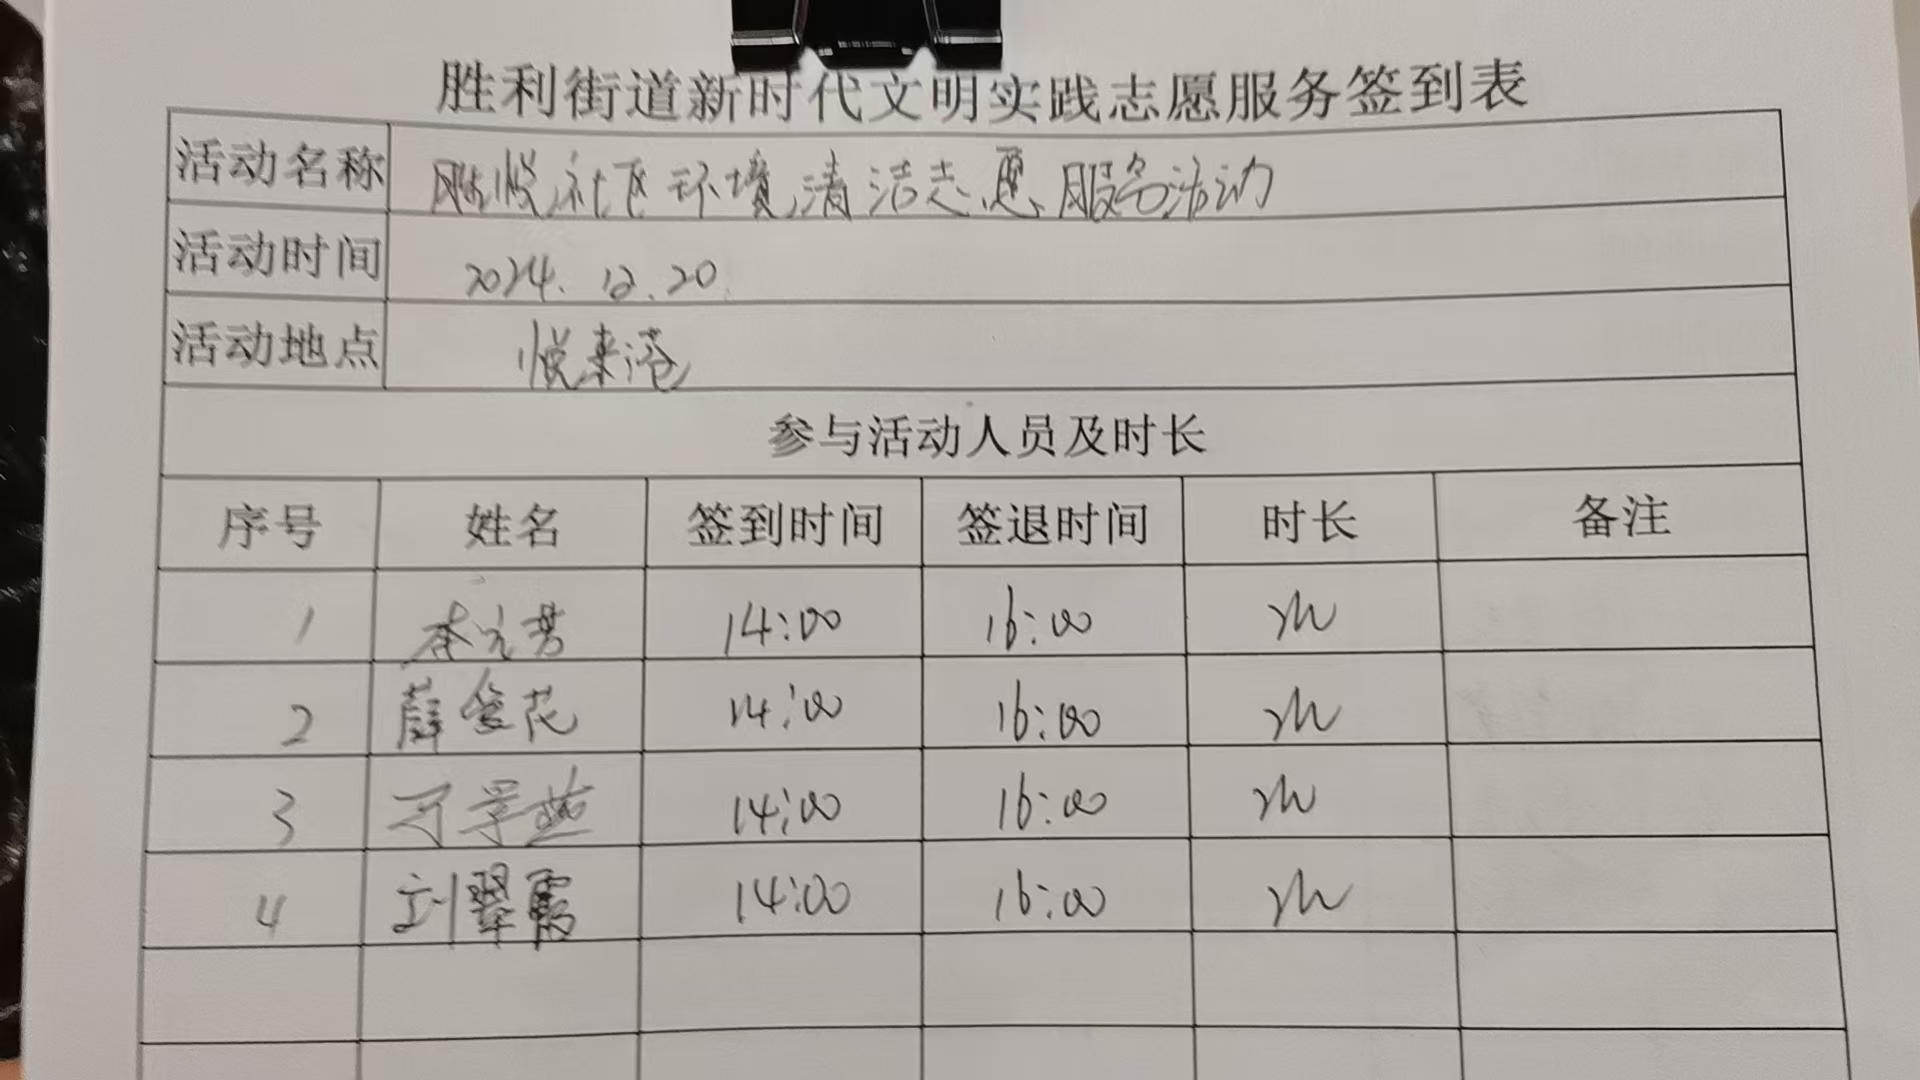 胜利街道新时代文明实践志愿服务签到表
活动名称 胜悦社区环境清洁志愿服务活动
活动时间 2024.12.20
活动地点 悦来港
参与活动人员及时长
序号 姓名 签到时间 签退时间 时长 备注
1 14:00 16:00 2h
2 薛俊花 14:00 16:00 2h
3 14:00 16:00 2h
4 刘翠霞 14:00 16:00 2h